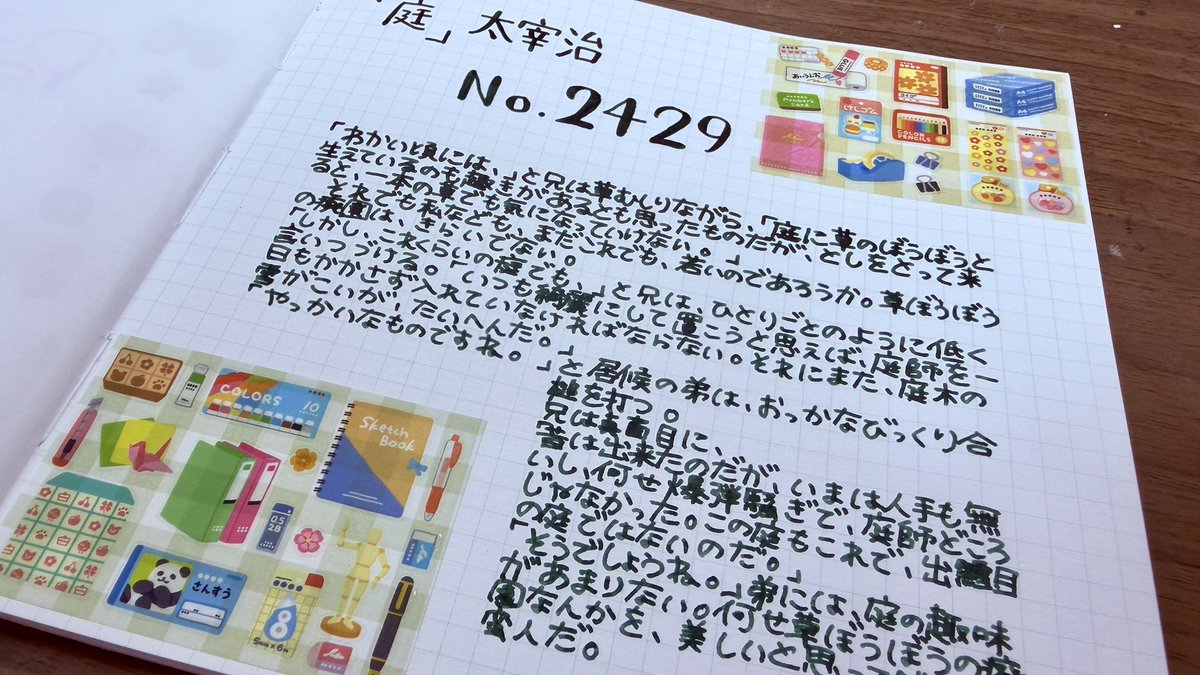 「庭」 太宰治
No.2429
「わかい頃には、」と兄は草むしりながら、「庭に草のぼうぼうと
生えているのも趣きがあるとも思ったものだが、としをとって来
ると、一本の草でも気になっていけない。」
それでも私なども、まだこれでも、若いのであろうか。草ぼうぼう
の廃園は、きらいでない。
「しかし、これくらいの庭でも、」と兄は、ひとりごとのように低く
言いつづける。「いつも綺麗にして置こうと思えば、庭師を一
日もかかさず入れていなければならない。それにまた、庭木の
雪がこいが、たいへんだ。」
「やっかいなものですね。」と居候の弟は、おっかなびっくり合
槌を打つ。
兄は真面目に、
「昔は出来たのだが、いまは人手も無
いし、何せ爆弾騒ぎで、庭師どころ
じゃなかった。この庭もこれで、出鱈目
の庭ではないのだ。」
「そうでしょうね。」弟には、庭の趣味
があまりない。何せ草ぼうぼうの廃
園なんかを、美しいと思って
蛮人だ。
あいうえお
GLUE
Member's Card
けしゴム
COLOR PENCILS
A4
A4
A4
COLORS 10
Sketch Book
0.5 2B
さんすう
8
5mm×6m